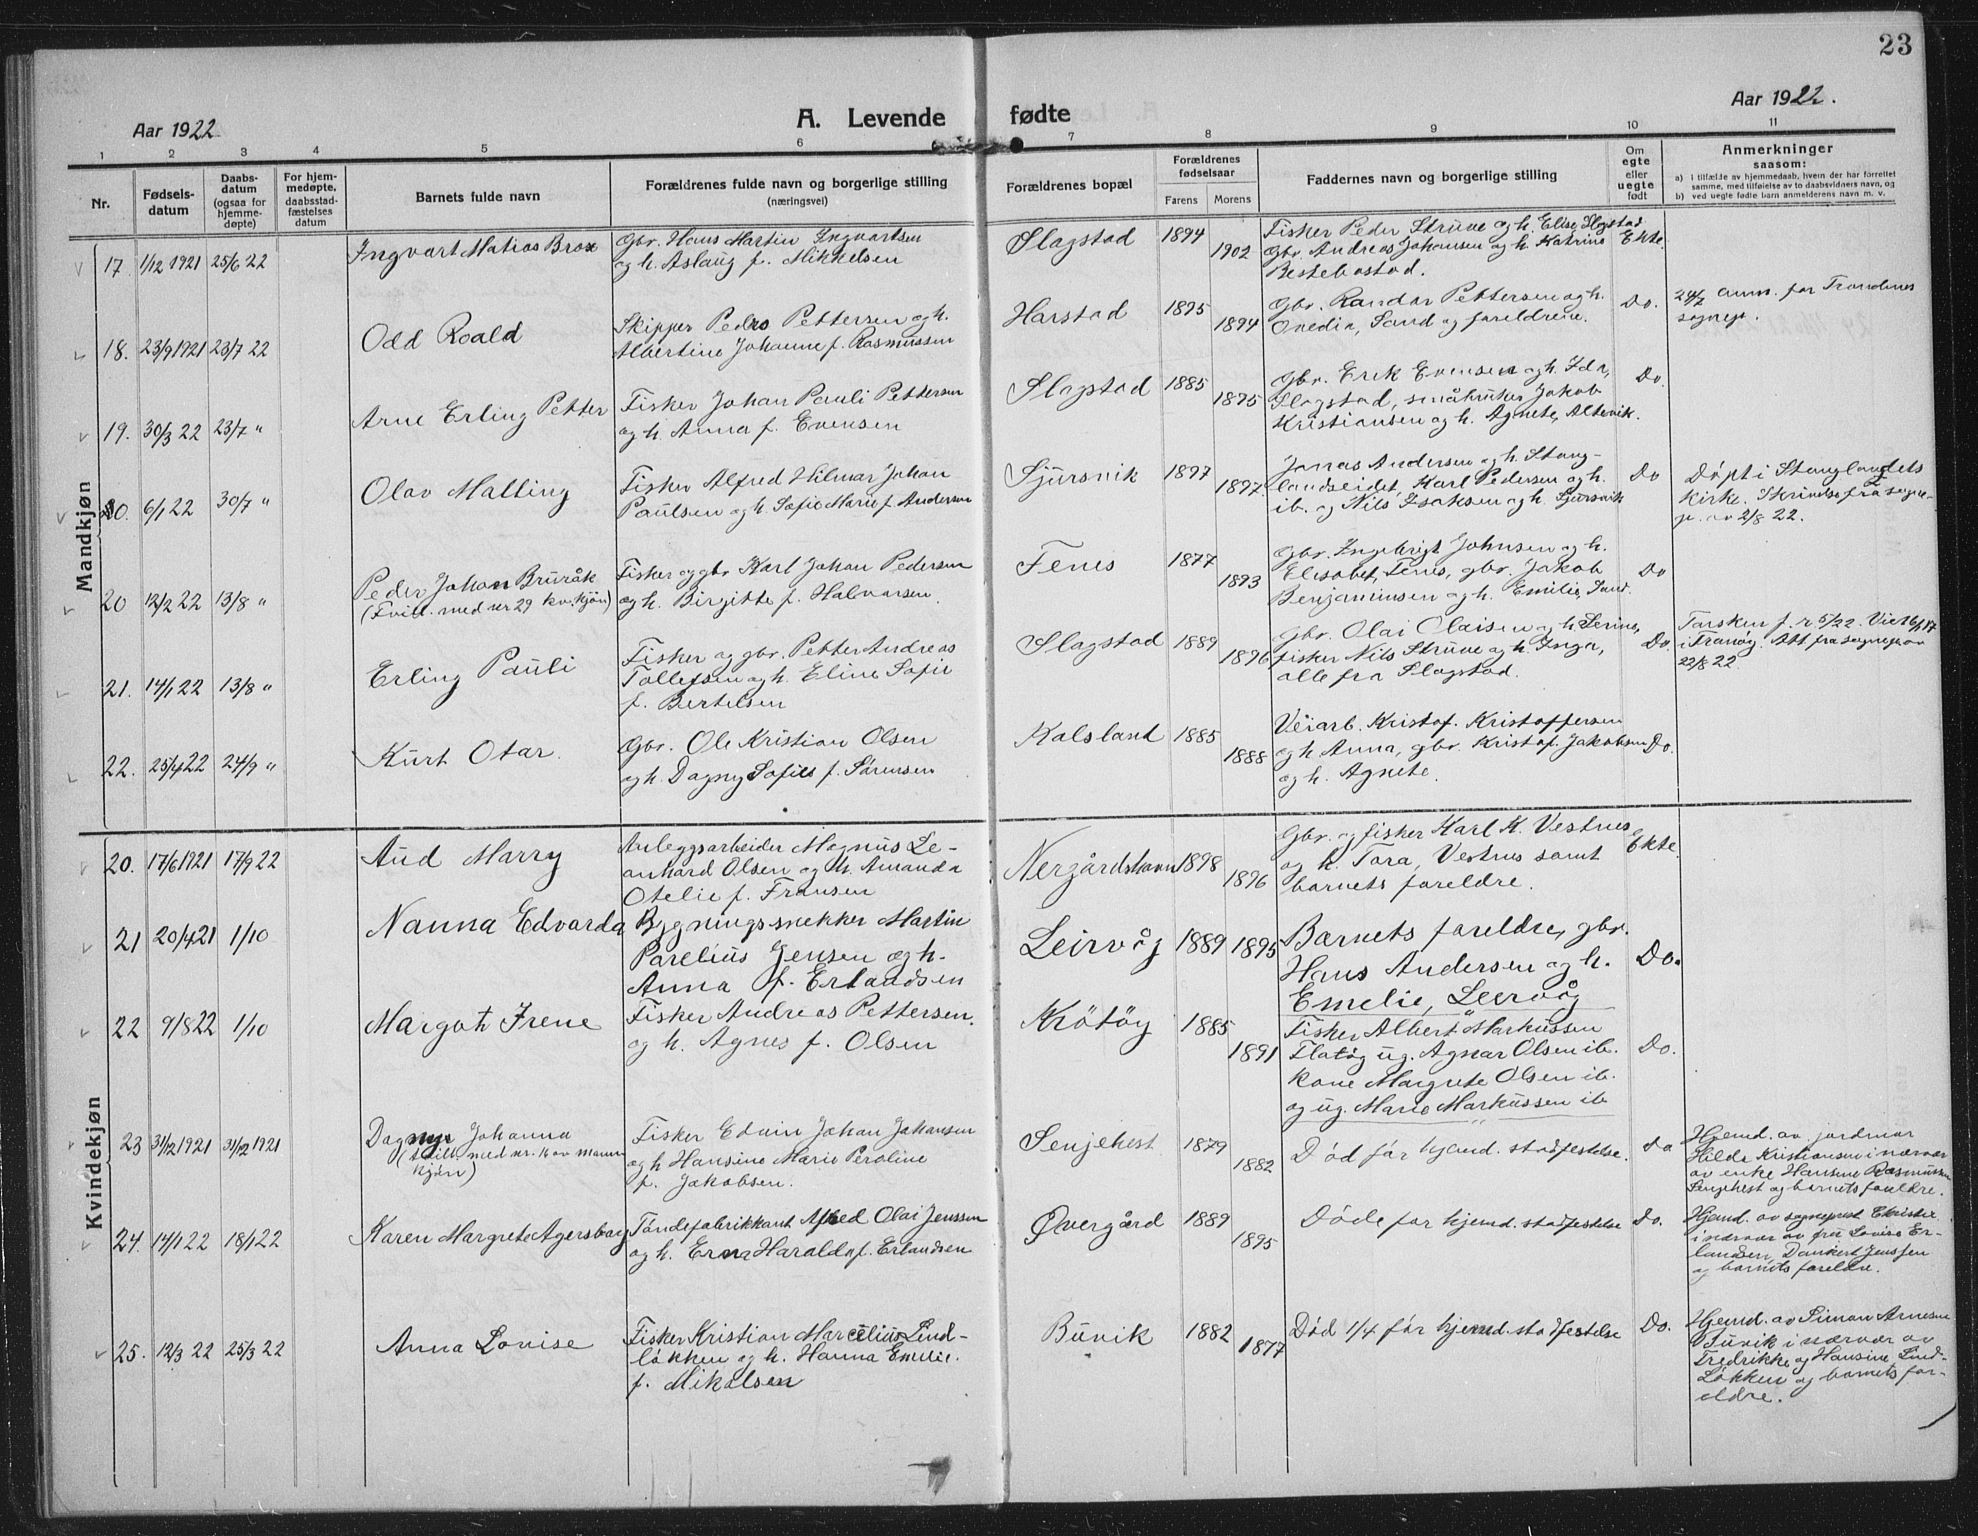 23
Aar 1922
A. Levende fødte
Aar 1922.
1 2 3 4 5 6 7 8 9 10 11
Nr.
Fødsels-
datum
Daabs-
datum
(ogsaa for
hjemme-
døpte)
For hjem-
medøpte,
daabsstad-
fæstelses
datum
Barnets fulde navn
Forældrenes fulde navn og borgerlige stilling
(næringsvei)
Forældrenes bopæl
Forældrenes
fødselsaar
Farens Morens
Faddernes navn og borgerlige stilling
Om
egte
eller
uegte
født
Anmerkninger
saasom:
a) i tilfælde av hjemmedaab, hvem der har forrettet
samme, med tilføielse av to daabsvidners navn, og
b) ved uegte fødte barn anmelderens navn m. v.
Mandkjøn
17. 1/12 1921 25/6 22
Ingvart Matias Brox
Gbr. Hans Martin Ingvartsen
og h. Aslaug f. Mikkelsen
Slagstad 1894 1902
Fisker Peder Strüve og h. Elise Slagstad
Gbr. Andreas Johansen og h. Katrine
Bestebostad.
Ekte.
18. 23/9 1921 23/7 22
Odd Roald
Skipper Pedro Pettersen og h.
Albertine Johanne f. Rasmussen
Harstad 1895 1894
Gbr. Randor Pettersen og h.
Ovedia, Sand og foreldrene.
Do.
24/7 anm. for Trondenes
sognepr.
19. 30/3 22 23/7 "
Arne Erling Petter
Fisker Johan Pauli Pettersen
og h. Anna f. Evensen
Slagstad 1885 1895
Gbr. Erik Evensen og h. Ida,
Slagstad, småbruker Jakob
Kristiansen og h. Agnete, Altevik.
Do.
20. 6/1 22 30/7 "
Olav Malling
Fisker Alfred Hilmar Johan
Paulsen og h. Sofie Marie f. Andersen
Sjursvik 1897 1897.
Jonas Andersen og h. Stang-
landseidet, Karl Pedersen og h.
ib. og Nils Isaksen og h. Sjursvik
Do
Döpt i Stanglandets
kirke. Skrivelse fra sogne-
p. av 2/8 22.
20 12/2 22 13/8 "
Peder Johan Bruråk
(Tvill. med nr 29 kv.kjön)
Fisker og gbr. Karl Johan Pedersen
og h. Birgitte f. Halvorsen.
Fenes 1877 1893
Gbr. Ingebrigt Johnsen og h.
Elisabet, Fenes, gbr. Jakob
Benjaminsen og h. Emilie, Sand.
Do
21. 14/1 22 13/8 "
Erling Pauli
Fisker og gbr. Petter Andreas
Tollefsen og h. Eline Sofie
f. Bertelsen
Slagstad 1889 1896
Gbr. Olai Olaisen og h. Serine,
fisker Nils Strüve og h. Inga,
alle fra Slagstad.
Do.
Torsken f. r. 5/22. Viet 6/1 17
i Tranöy. Att. fra sognepr. av
22/8 22.
22. 25/4 22 24/9 "
Kurt Otar.
Gbr. Ole Kristian Olsen
og h. Dagny Sofie f. Sörensen
Kalsland 1885 1888
Veiarb. Kristof. Kristoffersen
og h. Anna, gbr. Kristof. Jakobsen
og h. Agnete.
Do.
Kvindekjøn
20. 17/6 1921 17/9 22
Aud Marry
Anleggsarbeider Magnus Le-
onhard Olsen og h. Amanda
Otelie f. Fransen
Nergårdshavn 1898 1896
Gbr. og fisker Karl K. Vestnes
og h. Tora, Vestnes samt
barnets foreldre.
Ekte.
21 20/4 21 1/10
Nanna Edvarda
Bygningssnekker Martin
Parelius Jensen og h.
Anna f. Erlandsen
Leirvåg 1889 1895
Barnets foreldre, gbr.
Hans Andersen og h.
Emelie, Leervåg
Do.
22 9/8 22 1/10
Margot Irene
Fisker Andreas Pettersen.
og h. Agnes f. Olsen
Krötöy 1885 1891
Fisker Albert Markussen
Flatöy ug. Agnar Olsen ib.
kone Margrete Olsen ib.
og ug. Marie Markussen ib
Do.
23 31/12 1921 31/12 1921
Dagny Johanna
(tvill. med nr. 16 av mann
kjön)
Fisker Edvin Johan Johansen
og h. Hansine Marie Peroline
f. Jakobsen.
Senjehest 1879 1882
Död för hjemd. stadfestelse.
Do
Hjemd. av jordmor
Hilda Kristiansen i nærvær
av enke Hansine Rasmussen
Senjehest og barnets foreldre.
24. 14/1 22 18/1 22
Karen Margrete Agersborg
Töndefabrikkant Alfred Olai Jenssen
og h. Erna Haralda f. Erlandsen
Övergård 1889 1895
Döde för hjemd. stadfestelse
Do.
Hjemd. av sogneprest
i nærvær av fru Lovise Er-
landsen, Dankert Jenssen
og barnets foreldre.
25. 12/3 22 25/3 22
Anna Lovise
Fisker Kristian Marcelius Lind-
løkken og h. Hanna Emelie.
f. Mikalsen
Buvik 1882 1877
Död 1/4 för hjemd. stadfestelse
Do.
Hjemd. av Simon Arnesen
Buvik i nærvær av
Fredrikke og Hansine Lind-
løkken og barnets for-
eldre.